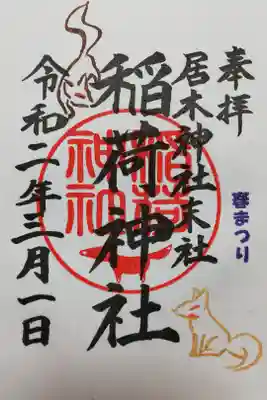 奉拝
居木神社末社
春まつり
稲荷神社
稲荷
神社
令和二年三月一日